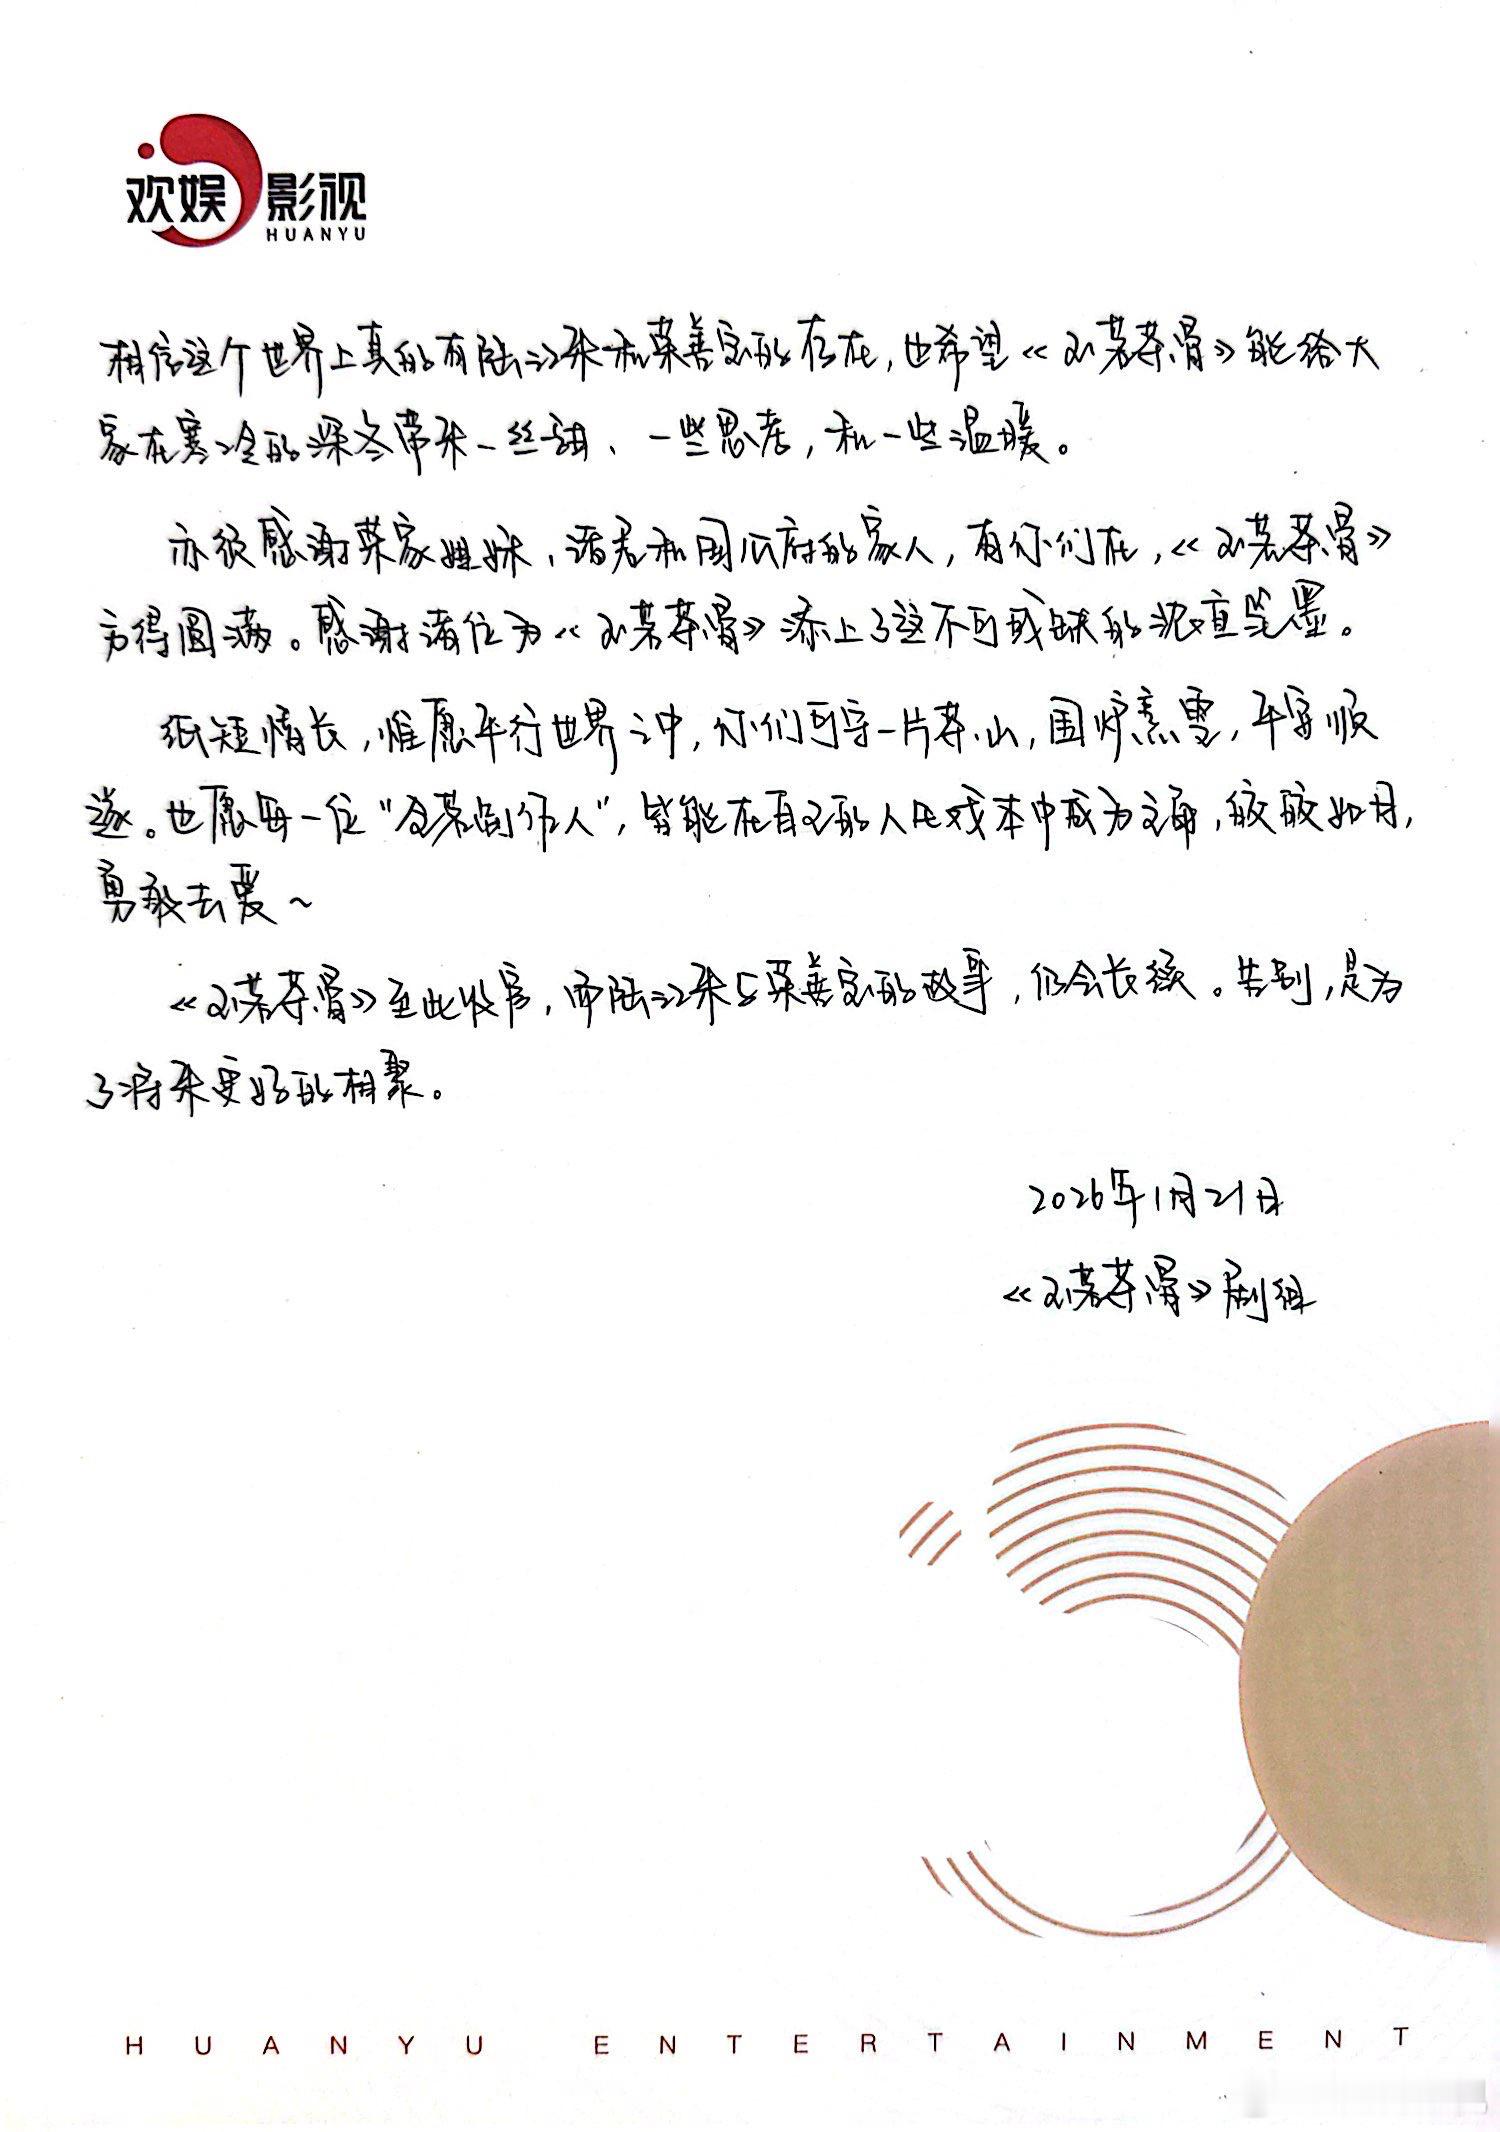 欢娱影视
HUANYU
相信这个世界上真的有陆江来和荣善宝的存在，也希望《玉茗茶骨》能给大
家在寒冷的深冬带来一丝甜、一些思考，和一些温暖。
亦很感谢荣家姐妹、诸君和国瓜府的家人，有你们在，《玉茗茶骨》
方得圆满。感谢诸位为《玉茗茶骨》添上了这不可或缺的浓直笔墨。
纸短情长，惟愿平行世界之中，你们可守一片茶山，围炉煮雪，平安顺
遂。也愿每一位“全茗制作人”，皆能在自己的人生戏本中成为主角，皎皎如月，
勇敢去爱~
《玉茗茶骨》至此收官，而陆江来与荣善宝的故事，仍会长续。告别，是为
了将来更好的相聚。
2026年1月21日
《玉茗茶骨》剧组
HUANYU ENTERTAINMENT